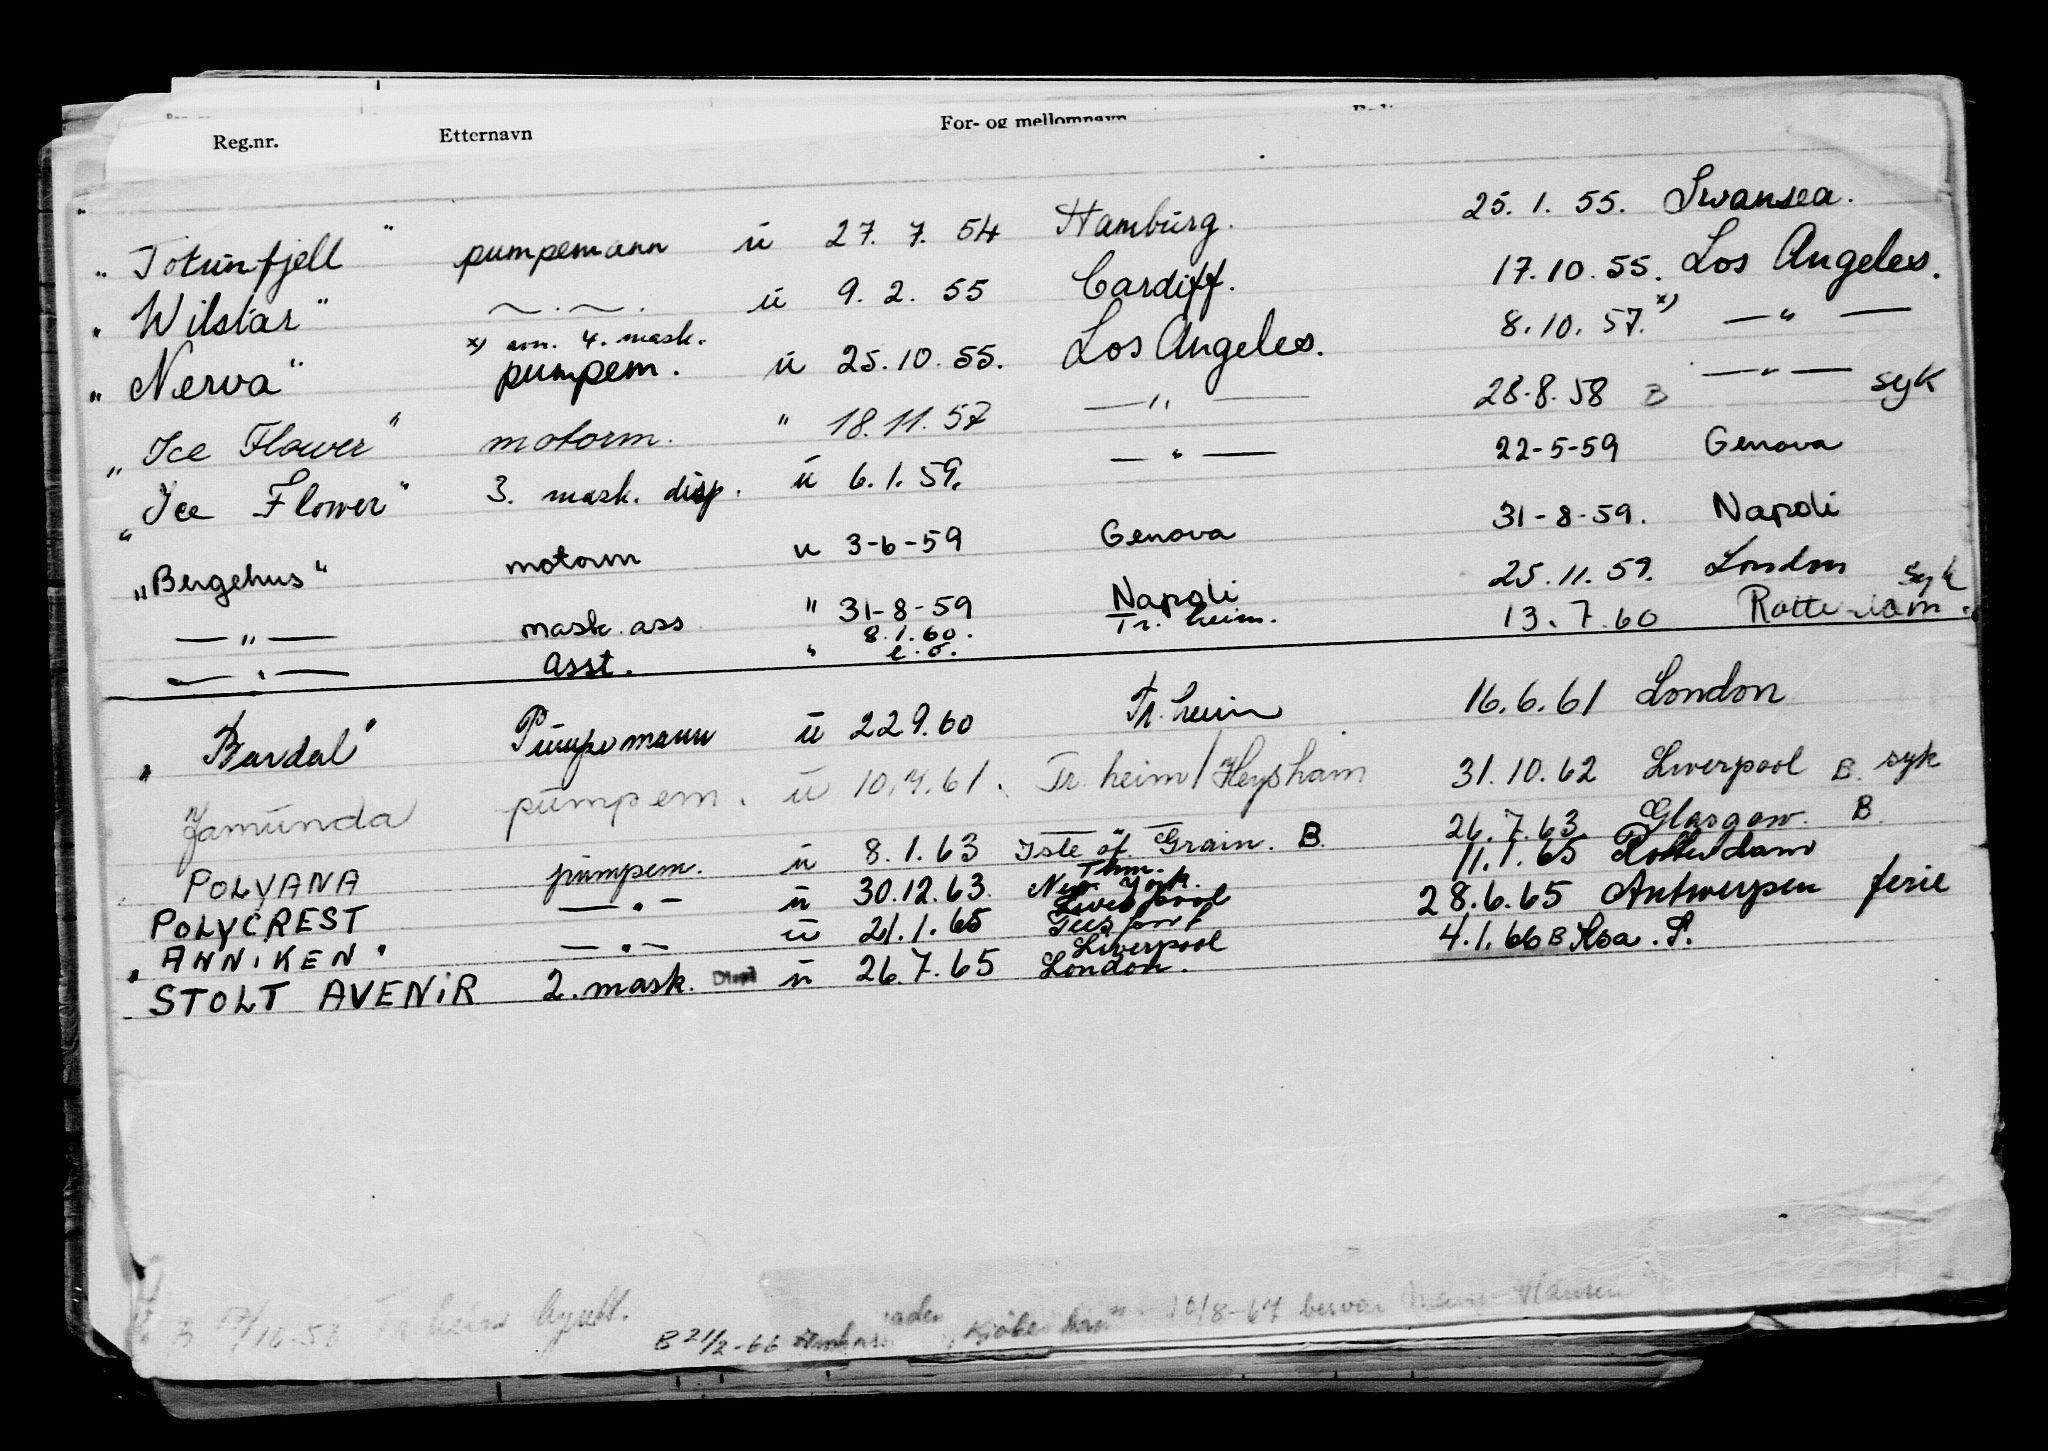 Reg.nr. Etternavn For- og mellomnavn
"Jotunfjell" pumpemann u 27. 7. 54 Hamburg. 25. 1. 55. Swansea.
"Wilstar" —.—. u 9. 2. 55 Cardiff. 17. 10. 55. Los Angeles.
x) avm. 4. mask.
"Nerva" pumpem. u 25. 10. 55. Los Angeles. 8. 10. 57. x) — " —
"Ice Flower" motorm. " 18. 11. 57 — " — 28. 8. 58 B — " — syk
"Ice Flower" 3. mask. disp. u 6. 1. 59. — " — 22-5-59 Genova
"Bergehus" motorm u 3-6-59 Genova 31-8-59. Napoli
— " — mask. ass " 31-8-59 Napoli 25. 11. 59. London syk
— " — asst. " 8. 1. 60. e. o. Tr. heim. 13. 7. 60 Rotterdam.
"Bardal" Pumpemann u 22 9. 60 Tr. heim 16. 6. 61 London
Jamunda pumpem. u 10. 7. 61. Tr. heim / Heysham 31. 10. 62 Liverpool B. syk
POLYANA pumpem. u 8. 1. 63 Isle of Grain. B. 26. 7. 63 Glasgow. B.
POLYCREST — " — u 30. 12. 63. Thm. New York. 11. 1. 65 Rotterdam
"ANNIKEN" — " — u 21. 1. 65 Liverpool 28. 6. 65 Antwerpen ferie
STOLT AVENIR 2. mask. Disp u 26. 7. 65 Liverpool London. 4. 1. 66 B
B Tr heim hyutt.
B 21/2-66 "Kjøbenhavn" 10/8-67 Hansen